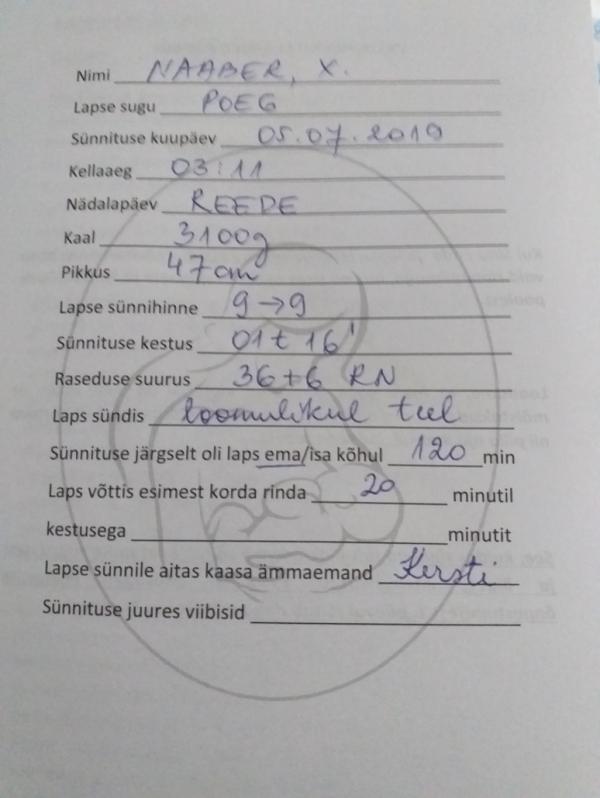 Nimi NAABER, X.
Lapse sugu POEG
Sünnituse kuupäev 05.07.2019
Kellaaeg 03:11
Nädalapäev REEDE
Kaal 3100g
Pikkus 47cm
Lapse sünnihinne 9→9
Sünnituse kestus 01t 16'
Raseduse suurus 36+6 RN
Laps sündis loomulikul teel
Sünnituse järgselt oli laps ema/isa kõhul 120 min
Laps võttis esimest korda rinda 20 minutil
kestusega minutit
Lapse sünnile aitas kaasa ämmaemand Kersti
Sünnituse juures viibisid